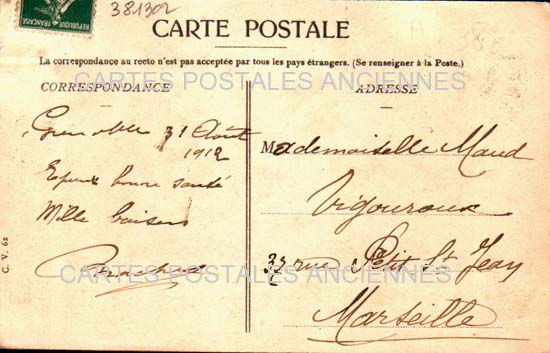 REPUBLIQUE FRANÇAISE
381302
CARTE POSTALE
La correspondance au recto n'est pas acceptée par tous les pays étrangers. (Se renseigner à la Poste.)
CARTES POSTALES ANCIENNES
CORRESPONDANCE
Grenoble 31 Août
1912
bonne santé
Mille baisers
C. V. 62
ADRESSE
Mademoiselle Maud
Vigouroux
37 rue Petit St Jean
Marseille
CARTES POSTALES ANCIENNES